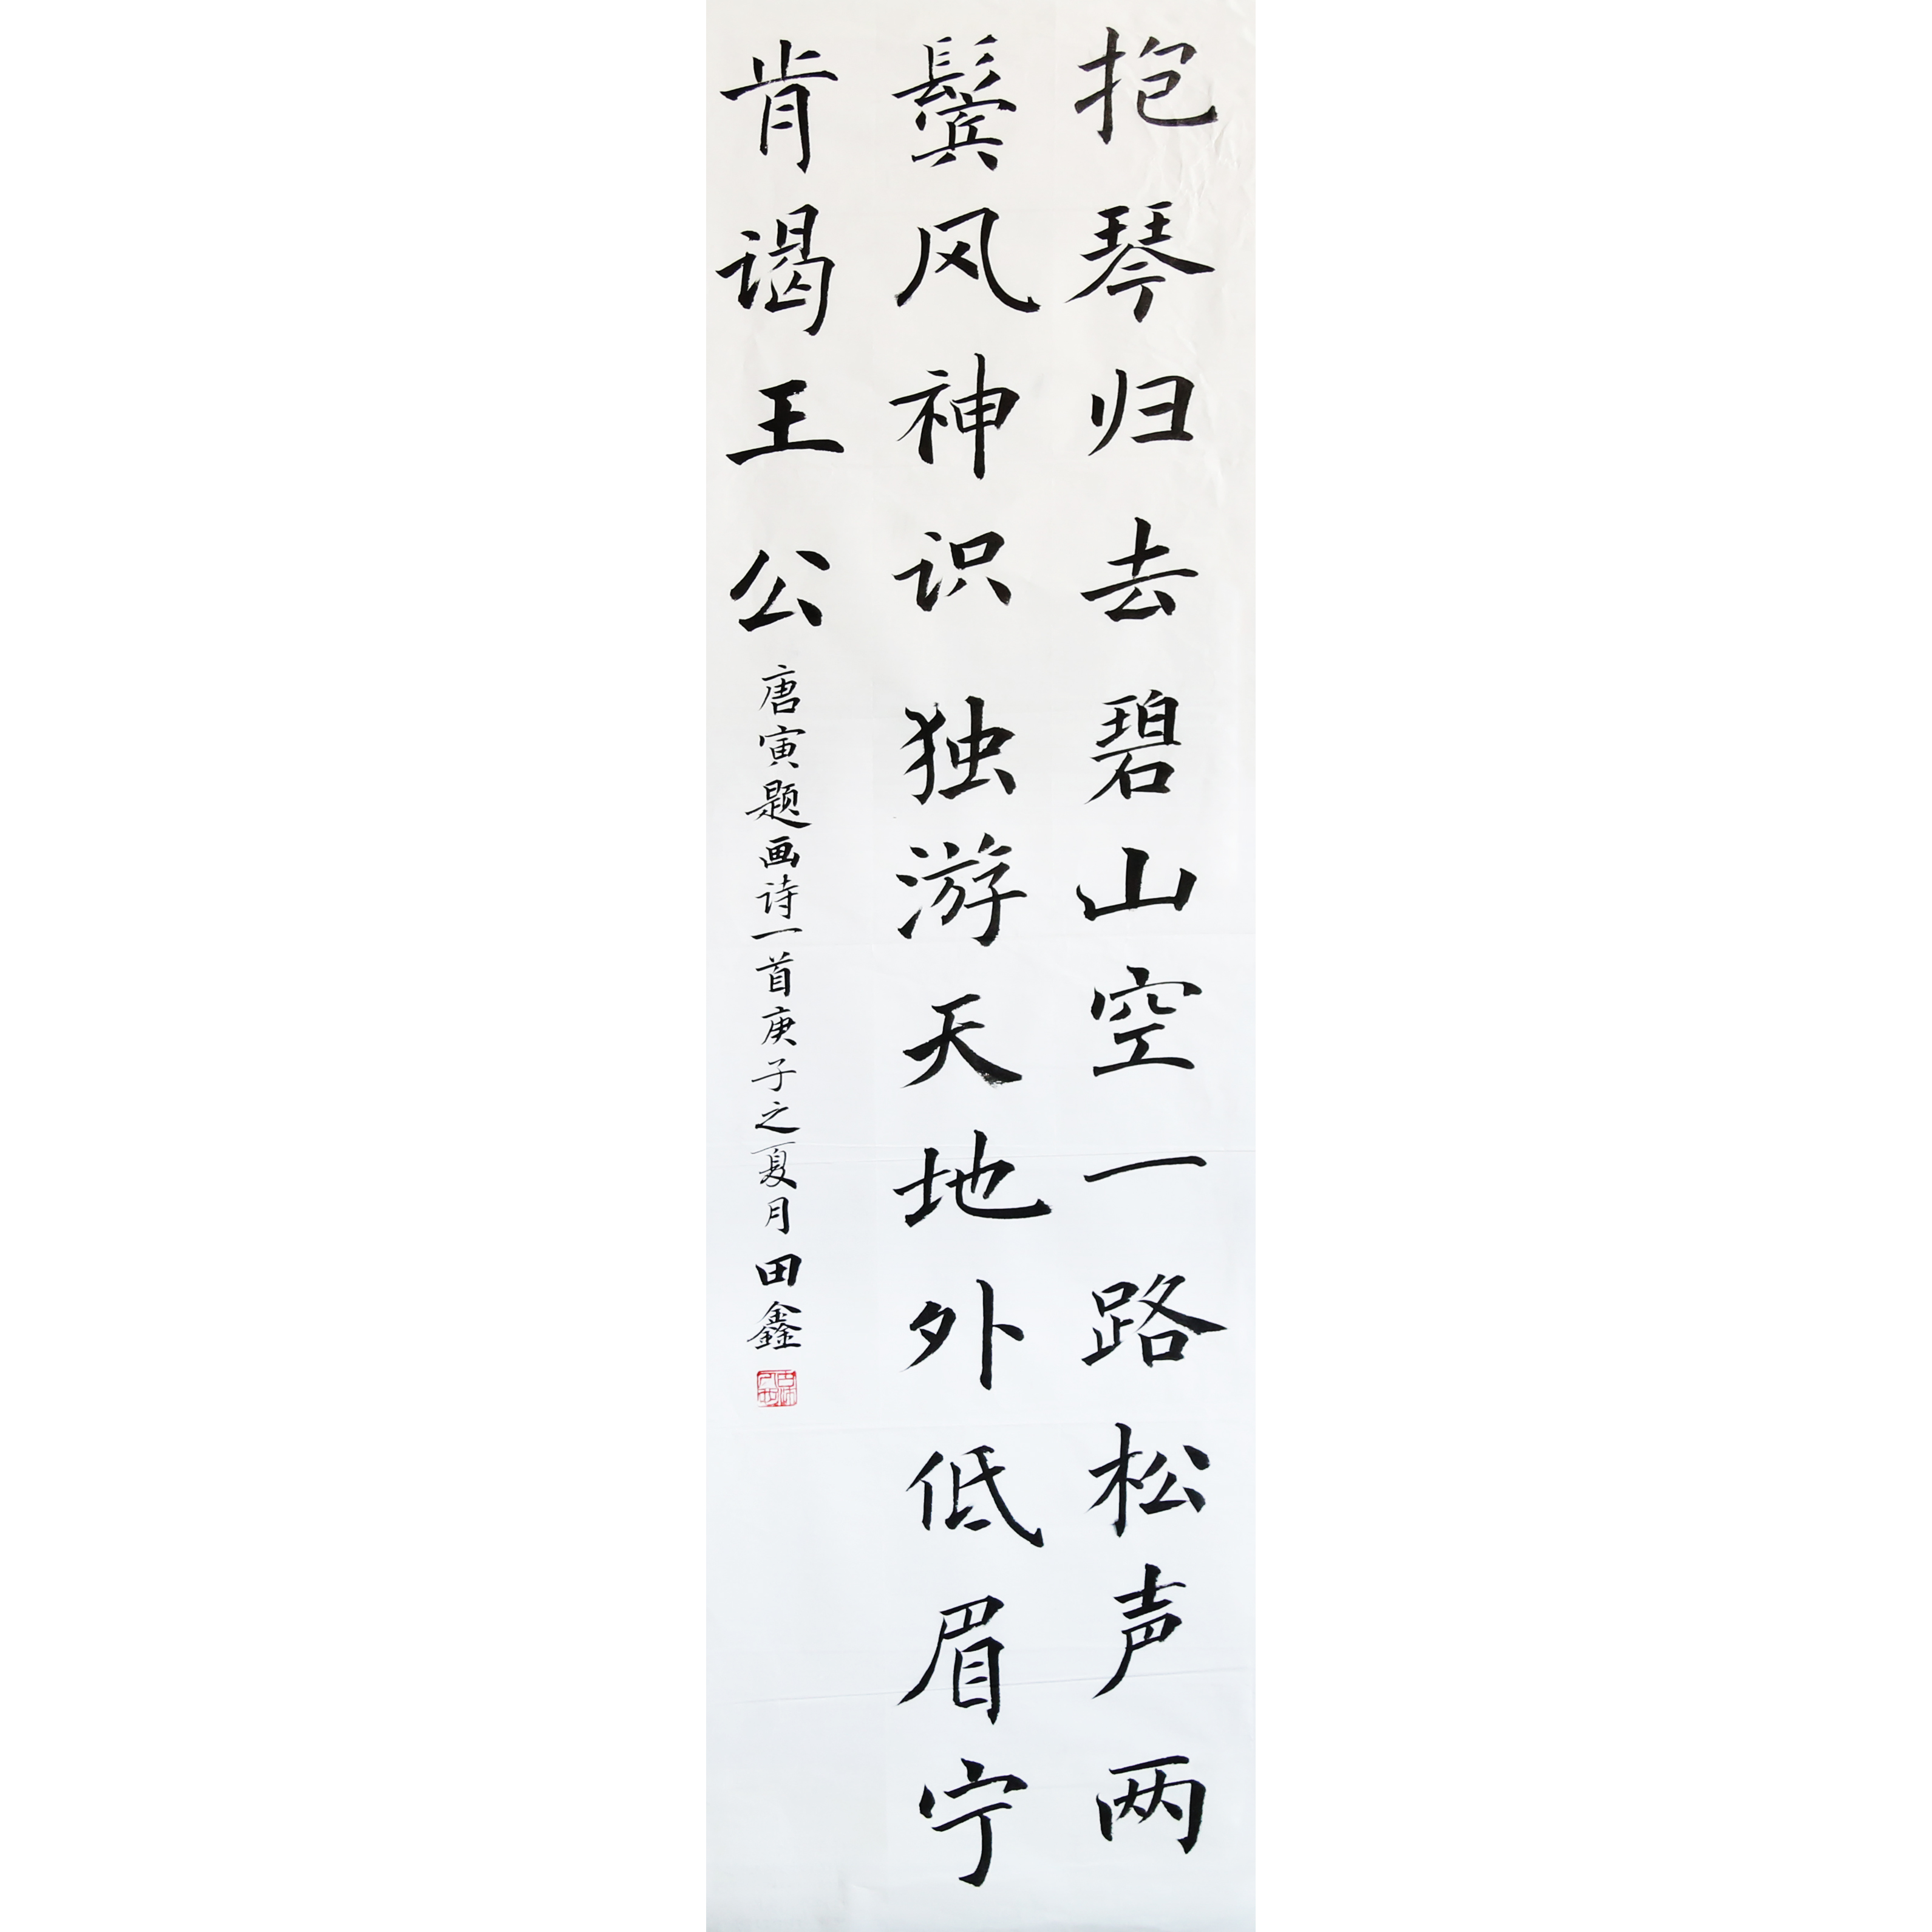 抱琴归去碧山空一路松声两
鬓风神识独游天地外低眉宁
肯谒王公
唐寅题画诗一首庚子之夏月田鑫